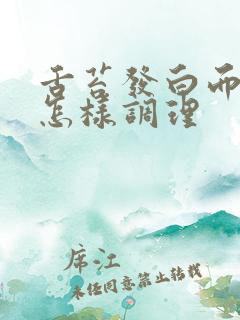 舌苔發白而
怎樣調理
席江
未经同意禁止转载